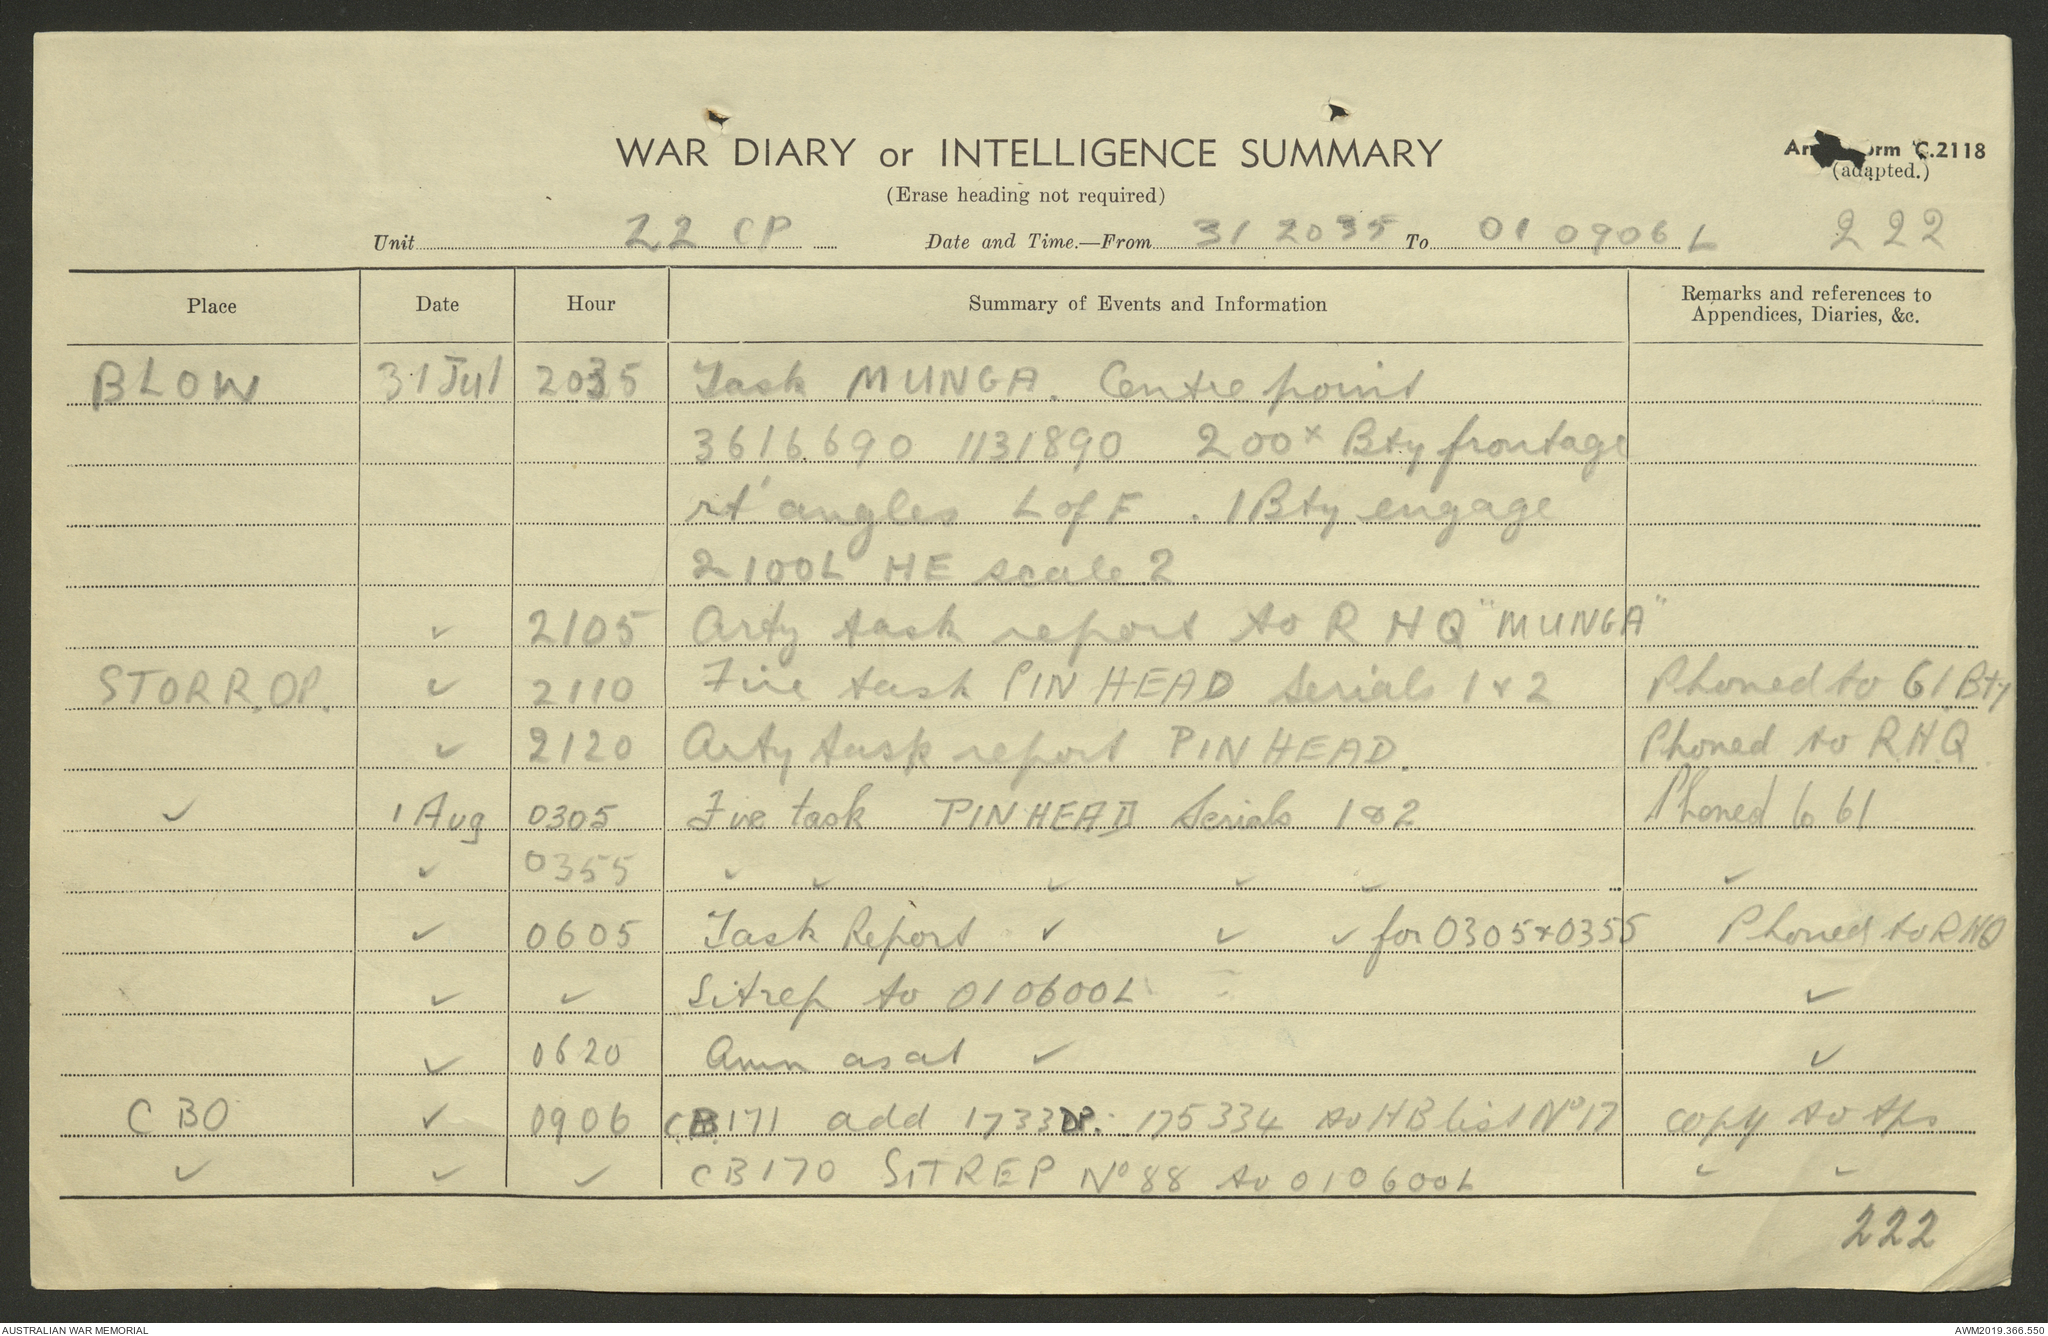 WAR DIARY or INTELLIGENCE SUMMARY
Army Form C.2118
(adapted.)
(Erase heading not required)
Unit 22 CP Date and Time.—From 31 2035 To 01 0906 L 222
Place Date Hour Summary of Events and Information Remarks and references to Appendices, Diaries, &c.
BLOW 31 Jul 2035 Task MUNGA. Centre point
3616690 1131890 200x Bty frontage
rt angles L of F. 1 Bty engage
2100L HE scale 2
✓ 2105 Arty task report to RHQ "MUNGA"
STORR.OP. ✓ 2110 Fire task PINHEAD Serials 1 & 2 Phoned to 61 Bty
✓ 2120 Arty task report PINHEAD. Phoned to RHQ
✓ 1 Aug 0305 Fire task PINHEAD Serials 1 & 2 Phoned to 61
✓ 0355 ✓ ✓ ✓ ✓ ✓ ✓
✓ 0605 Task Report ✓ ✓ ✓ for 0305 & 0355 Phoned to RHQ
✓ ✓ Sitrep to 010600L ✓
✓ 0620 Amn as at ✓ ✓
CBO ✓ 0906 CB171 add 1733 DP. 175334 to HB list No 17 copy to tps
✓ ✓ ✓ CB170 SITREP No 88 to 010600L ✓ ✓
222
AUSTRALIAN WAR MEMORIAL AWM2019.366.550